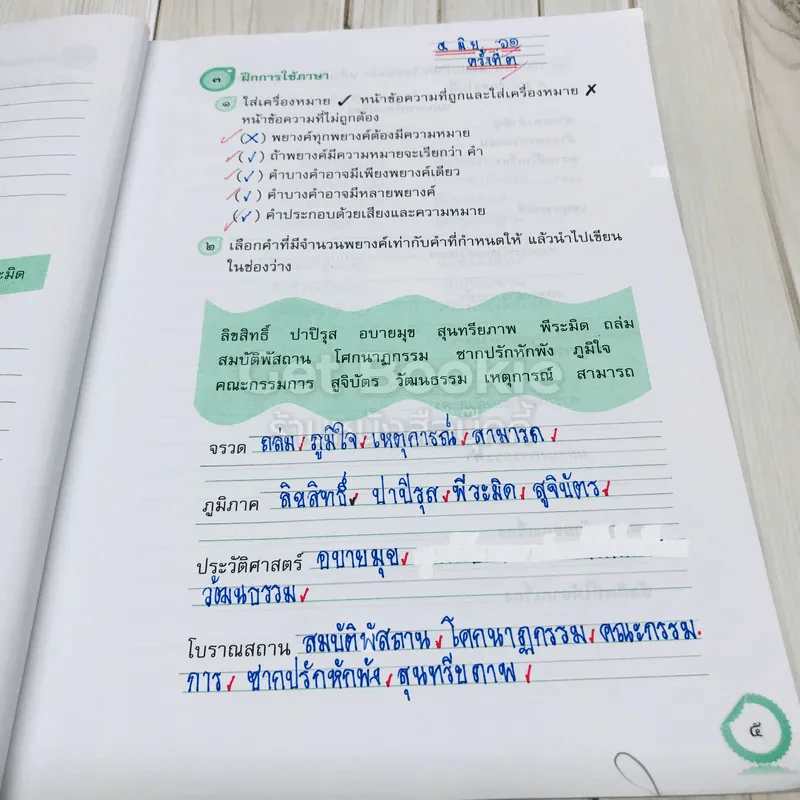 ๕ มิ.ย. ๖๑
ครั้งที่ ๓
๓ ฝึกการใช้ภาษา
๑ ใส่เครื่องหมาย ✓ หน้าข้อความที่ถูกและใส่เครื่องหมาย ✗
หน้าข้อความที่ไม่ถูกต้อง
(✗) พยางค์ทุกพยางค์ต้องมีความหมาย
(✓) ถ้าพยางค์มีความหมายจะเรียกว่า คำ
(✓) คำบางคำอาจมีเพียงพยางค์เดียว
(✓) คำบางคำอาจมีหลายพยางค์
(✓) คำประกอบด้วยเสียงและความหมาย
๒ เลือกคำที่มีจำนวนพยางค์เท่ากับคำที่กำหนดให้ แล้วนำไปเขียน
ในช่องว่าง
ระมิด
ลิขสิทธิ์ ปาปิรุส อบายมุข สุนทรียภาพ พีระมิด ถล่ม
สมบัติพัสถาน โศกนาฏกรรม ซากปรักหักพัง ภูมิใจ
คณะกรรมการ สูจิบัตร วัฒนธรรม เหตุการณ์ สามารถ
Get Bookie
จรวด ถล่ม ภูมิใจ เหตุการณ์ สามารถ
ภูมิภาค ลิขสิทธิ์ ปาปิรุส พีระมิด สูจิบัตร
ประวัติศาสตร์ อบายมุข
วัฒนธรรม
โบราณสถาน สมบัติพัสถาน โศกนาฏกรรม คณะกรรม
การ ซากปรักหักพัง สุนทรียภาพ
๕